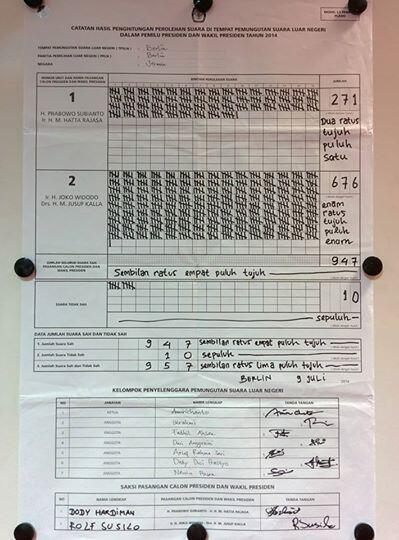 CATATAN HASIL PENGHITUNGAN PEROLEHAN SUARA DI TEMPAT PEMUNGUTAN SUARA LUAR NEGERI
DALAM PEMILU PRESIDEN DAN WAKIL PRESIDEN TAHUN 2014
TEMPAT PEMUNGUTAN SUARA LUAR NEGERI ( TPSLN ) : Berlin
PANITIA PEMILIHAN LUAR NEGERI ( PPLN ) : Berlin
NEGARA :
NOMOR URUT DAN NAMA PASANGAN CALON PRESIDEN DAN WAKIL PRESIDEN
RINCIAN PEROLEHAN SUARA
JUMLAH
1
H. PRABOWO SUBIANTO
Ir. H. M. HATTA RAJASA
271
Dua ratus
tujuh
puluh
satu
2
Ir. H. JOKO WIDODO
Drs. H. M. JUSUF KALLA
676
enam
ratus
tujuh
puluh
enam
JUMLAH SELURUH SUARA
PASANGAN CALON PRESIDEN DAN
WAKIL PRESIDEN
Sembilan ratus empat puluh tujuh
947
SUARA TIDAK SAH
10
sepuluh
DATA JUMLAH SUARA SAH DAN TIDAK SAH
1. Jumlah Suara Sah 9 4 7 sembilan ratus empat puluh tujuh
2. Jumlah Suara Tidak Sah 1 0 sepuluh
3. Jumlah Suara Sah dan Tidak Sah 9 5 7 sembilan ratus lima puluh tujuh
BERLIN 9 JULI 2014
KELOMPOK PENYELENGGARA PEMUNGUTAN SUARA LUAR NEGERI
NO JABATAN NAMA LENGKAP TANDA TANGAN
1 KETUA
2 ANGGOTA
3 ANGGOTA
4 ANGGOTA
5 ANGGOTA
6 ANGGOTA
7 ANGGOTA
SAKSI PASANGAN CALON PRESIDEN DAN WAKIL PRESIDEN
NO NAMA LENGKAP PASANGAN CALON PRESIDEN DAN WAKIL PRESIDEN TANDA TANGAN
DODY HARDIMAN H. PRABOWO SUBIANTO - Ir. H. M. HATTA RAJASA
ROLF SUSILO Ir. H. JOKO WIDODO - Drs. H. M. JUSUF KALLA